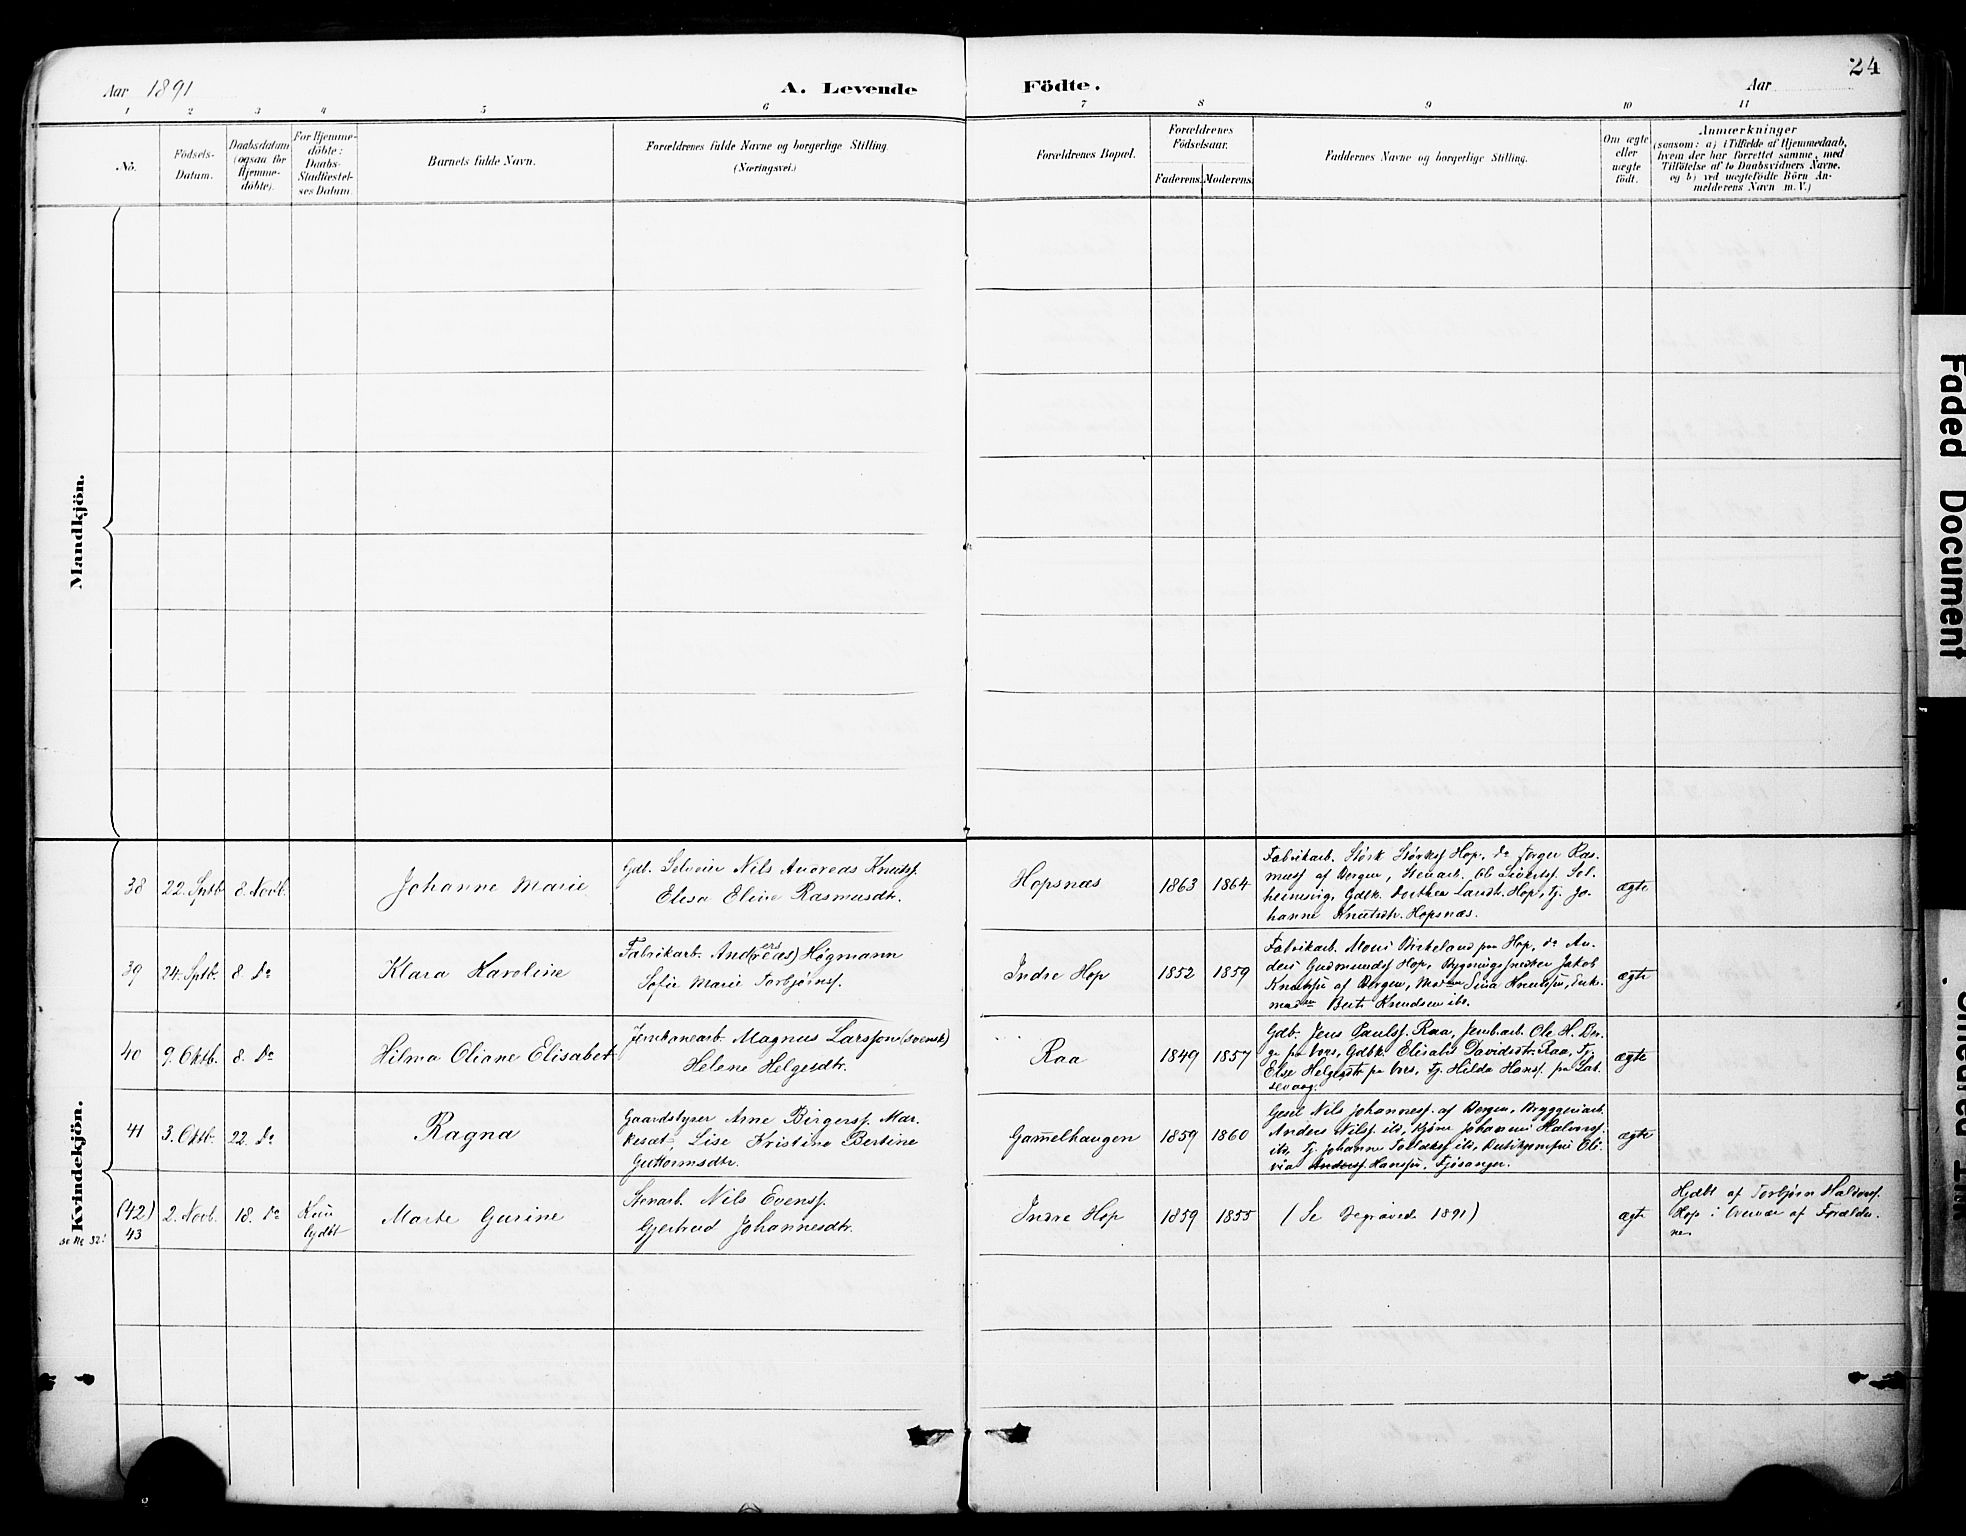 24
Aar 1891
A. Levende Födte.
Aar
1 2 3 4 5 6 7 8 9 10 11
No.
Födsels-
Datum.
Daabsdatum
(ogsaa for
Hjemme-
döbte).
For Hjemme-
döbte:
Daabs-
Stadfæstel-
ses Datum.
Barnets fulde Navn.
Forældrenes fulde Navne og borgerlige Stilling.
(Næringsvei.)
Forældrenes Bopæl.
Forældrenes
Födselsaar.
Faderens. Moderens.
Faddernes Navne og borgerlige Stilling.
Om ægte
eller
uægte
födt.
Anmærkninger
(saasom: a) i Tilfælde af Hjemmedaab,
hvem der har forrettet samme, med
Tilföielse af to Daabsvidners Navne.
og b) ved uægtefödte Börn An-
melderens Navn m.V.)
Mandkjön.
Kvindekjön.
38 22. Sptb. 8. Novb.
Johanne Marie
Gdl. Selveier Nils Andreas Knuts.
Elisa Eline Rasmusdtr.
Hopsnæs
1863 1864
Fabrikarb. Størk Størks. Hop, do Jørger Ras-
muss. af Bergen, Stenarb. Ole Siverts. Sol-
heimsvig, Gdbk. Dorthea Hop, Tj. Jo-
hanne Knutsdtr. Hopsnæs.
ægte
39 24. Sptb. 8. Do
Klara Karoline
Fabrikarb. And(reas)ers Høgmann
Sofie Marie Torbjørns.
Indre Hop
1852 1859
Fabrikarb. Mons Birkeland paa Hop, do An-
ders Gudmunds. Hop, Bygningssnedker Jakob
Knutsen af Bergen, Madam Sina Knutsen,
Berte Knudsen ibd.
ægte
40 9. Oktb. 8. Do
Hilma Oliane Elisabet
Jernbanearb. Magnus Larsson (svensk)
Helene Helgesdtr.
Raa
1849 1857
Gdb. Jens Pauls. Raa, Jernb.arb. Ole H.
fra Vors, Gdbk. Elisabet Davidsdtr. Raa, Tj.
Else Helgesdtr. fra Vors, Tj. Hilda Hans. fra Lak-
sevaag.
ægte
41 3. Oktb. 22. Do
Ragna
Gaardstyrer Arne Birgers. Mar-
kesæt, Lise Kristine Bertine
Guttormsdtr.
Gamelhaugen
1859 1860
Gesel Nils Johannes. af Bergen, Bryggeriarb.
Anders Nils. ibd, Johannes Halvors.
ibd, Tj. Johanne ibd, Oli-
via Anders. Hansen, Fjøsanger.
ægte
(42)
43
se No 52!
2. Novb. 18. Do
Kun
hjdbt
Marte Gurine
Stenarb. Nils Evens.
Gjertrud Johannesdtr.
Indre Hop
1859 1855
(Se Begravede 1891)
ægte
Hjdbt af Torbjørn Haldors.
Hop i Overvær af Forældre-
ne.
Faded Document